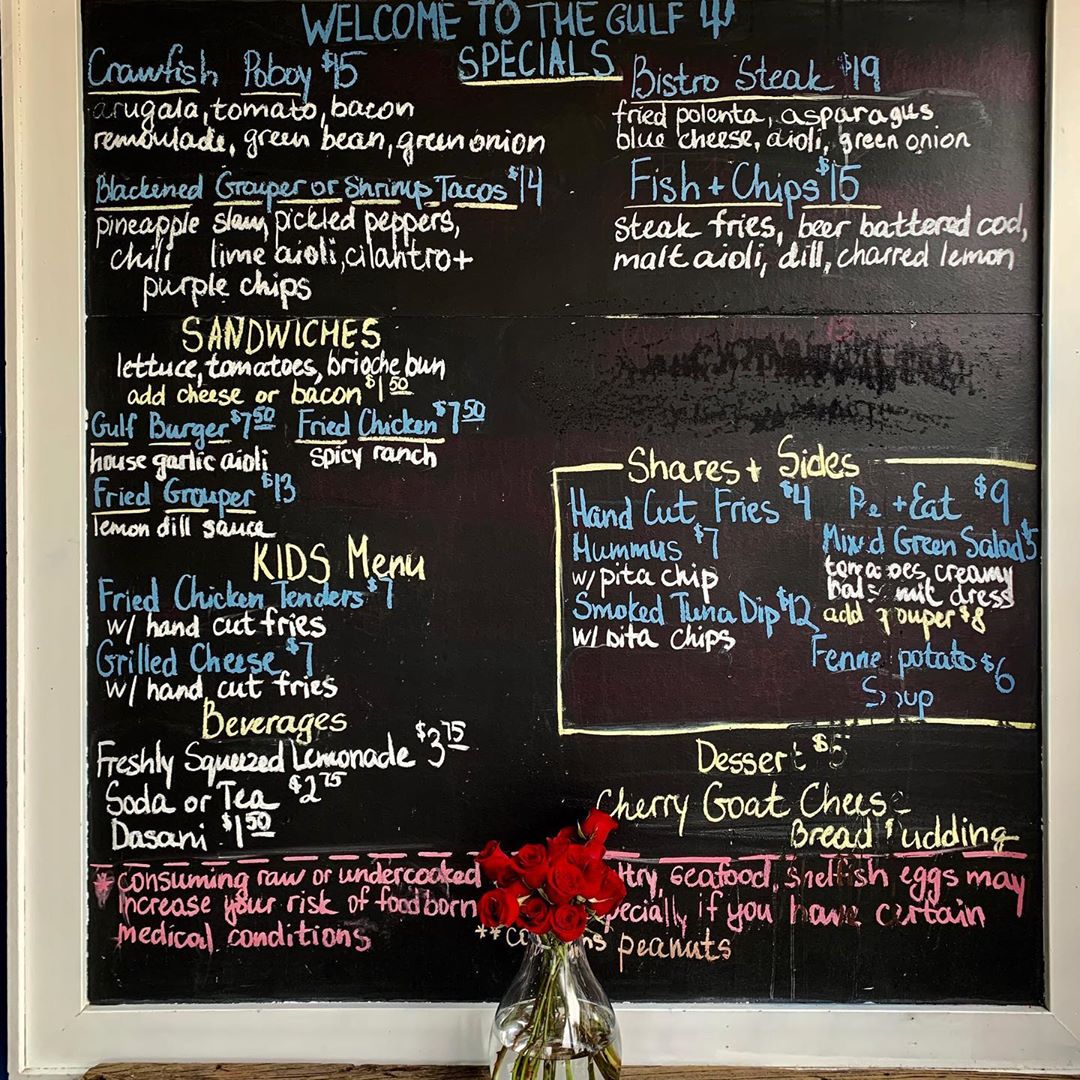 WELCOME TO THE GULF
SPECIALS
Crawfish Poboy $15
arugala, tomato, bacon
remoulade, green bean, green onion
Blackened Grouper or Shrimp Tacos $14
pineapple slaw, pickled peppers,
chili lime aioli, cilantro +
purple chips
Bistro Steak $19
fried polenta, asparagus
blue cheese, aioli, green onion
Fish + Chips $15
steak fries, beer battered cod,
malt aioli, dill, charred lemon
SANDWICHES
lettuce, tomatoes, brioche bun
add cheese or bacon $1 50
Gulf Burger $7 50
house garlic aioli
Fried Chicken $7 50
spicy ranch
Fried Grouper $13
lemon dill sauce
KIDS Menu
Fried Chicken Tenders $7
w/ hand cut fries
Grilled Cheese $7
w/ hand cut fries
Beverages
Freshly Squeezed Lemonade $3 75
Soda or Tea $2 75
Dasani $1 50
Shares + Sides
Hand Cut Fries $4
Hummus $7
w/ pita chip
Smoked Tuna Dip $12
w/ pita chips
+ Eat $9
Mixed Green Salad $5
tomatoes creamy
dress
add grouper $8
potato $6
Soup
Dessert $5
Cherry Goat Cheese
Bread Pudding
* consuming raw or undercooked seafood, shellfish eggs may
increase your risk of if you have certain
medical conditions
** peanuts